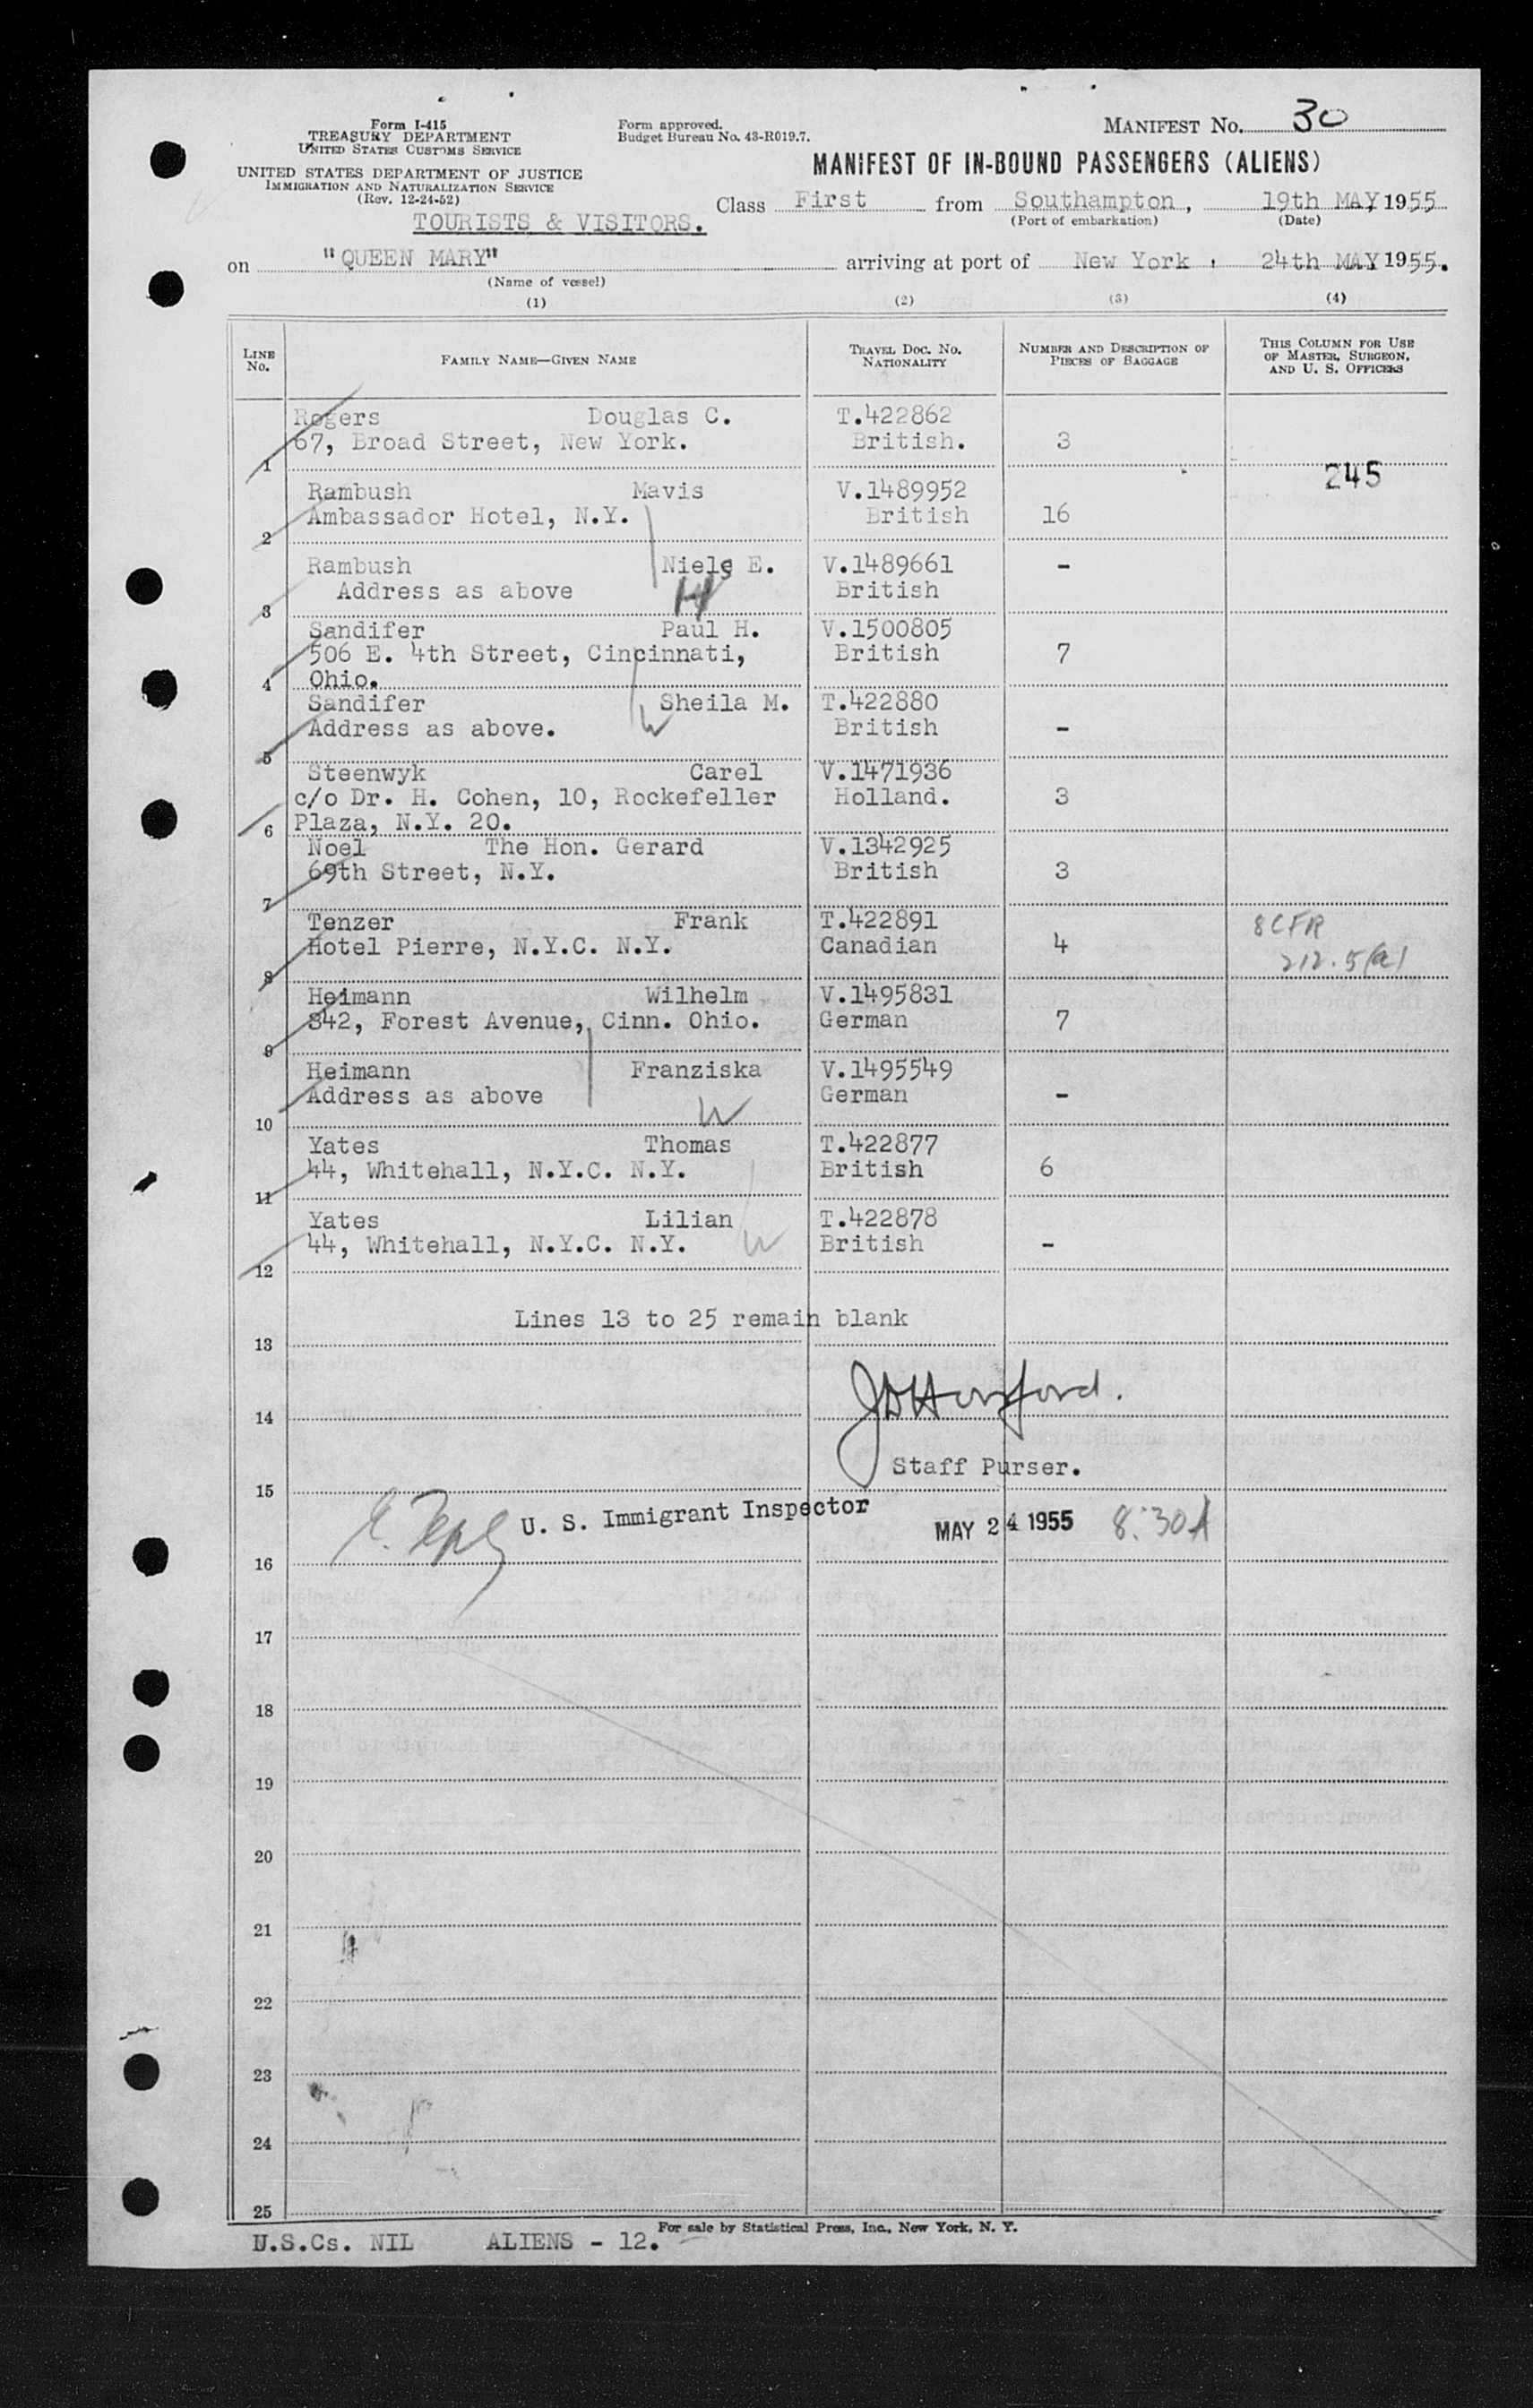 Form I-415
TREASURY DEPARTMENT
UNITED STATES CUSTOMS SERVICE
UNITED STATES DEPARTMENT OF JUSTICE
IMMIGRATION AND NATURALIZATION SERVICE
(Rev. 12-24-52)
TOURISTS & VISITORS.
Form approved.
Budget Bureau No. 43-R019.7.
MANIFEST No. 30
MANIFEST OF IN-BOUND PASSENGERS (ALIENS)
Class First from Southampton, 19th MAY, 1955
(Port of embarkation) (Date)
on "QUEEN MARY" arriving at port of New York, 24th MAY 1955.
(Name of vessel)
(1) (2) (3) (4)
LINE No. FAMILY NAME—GIVEN NAME TRAVEL DOC. No. NATIONALITY NUMBER AND DESCRIPTION OF PIECES OF BAGGAGE THIS COLUMN FOR USE OF MASTER, SURGEON, AND U. S. OFFICERS
Rogers Douglas C. T.422862
67, Broad Street, New York. British. 3
1
245
Rambush Mavis V.1489952
Ambassador Hotel, N.Y. British 16
2
Rambush Niels E. V.1489661 -
Address as above British
3
Sandifer Paul H. V.1500805
506 E. 4th Street, Cincinnati, British 7
4 Ohio.
Sandifer Sheila M. T.422880
Address as above. British -
5 W
Steenwyk Carel V.1471936
c/o Dr. H. Cohen, 10, Rockefeller Holland. 3
6 Plaza, N.Y. 20.
Noel The Hon. Gerard V.1342925
69th Street, N.Y. British 3
7
Tenzer Frank T.422891 8 CFR
Hotel Pierre, N.Y.C. N.Y. Canadian 4 212.5(a)
8
Heimann Wilhelm V.1495831
842, Forest Avenue, Cinn. Ohio. German 7
9
Heimann Franziska V.1495549
Address as above German -
10 W
Yates Thomas T.422877
44, Whitehall, N.Y.C. N.Y. British 6
11
Yates Lilian T.422878
44, Whitehall, N.Y.C. N.Y. W British -
12
Lines 13 to 25 remain blank
13
14
Staff Purser.
15
U. S. Immigrant Inspector MAY 24 1955 8:30A
16
17
18
19
20
21
22
23
24
25
For sale by Statistical Press, Inc., New York, N. Y.
U.S.Cs. NIL ALIENS - 12.